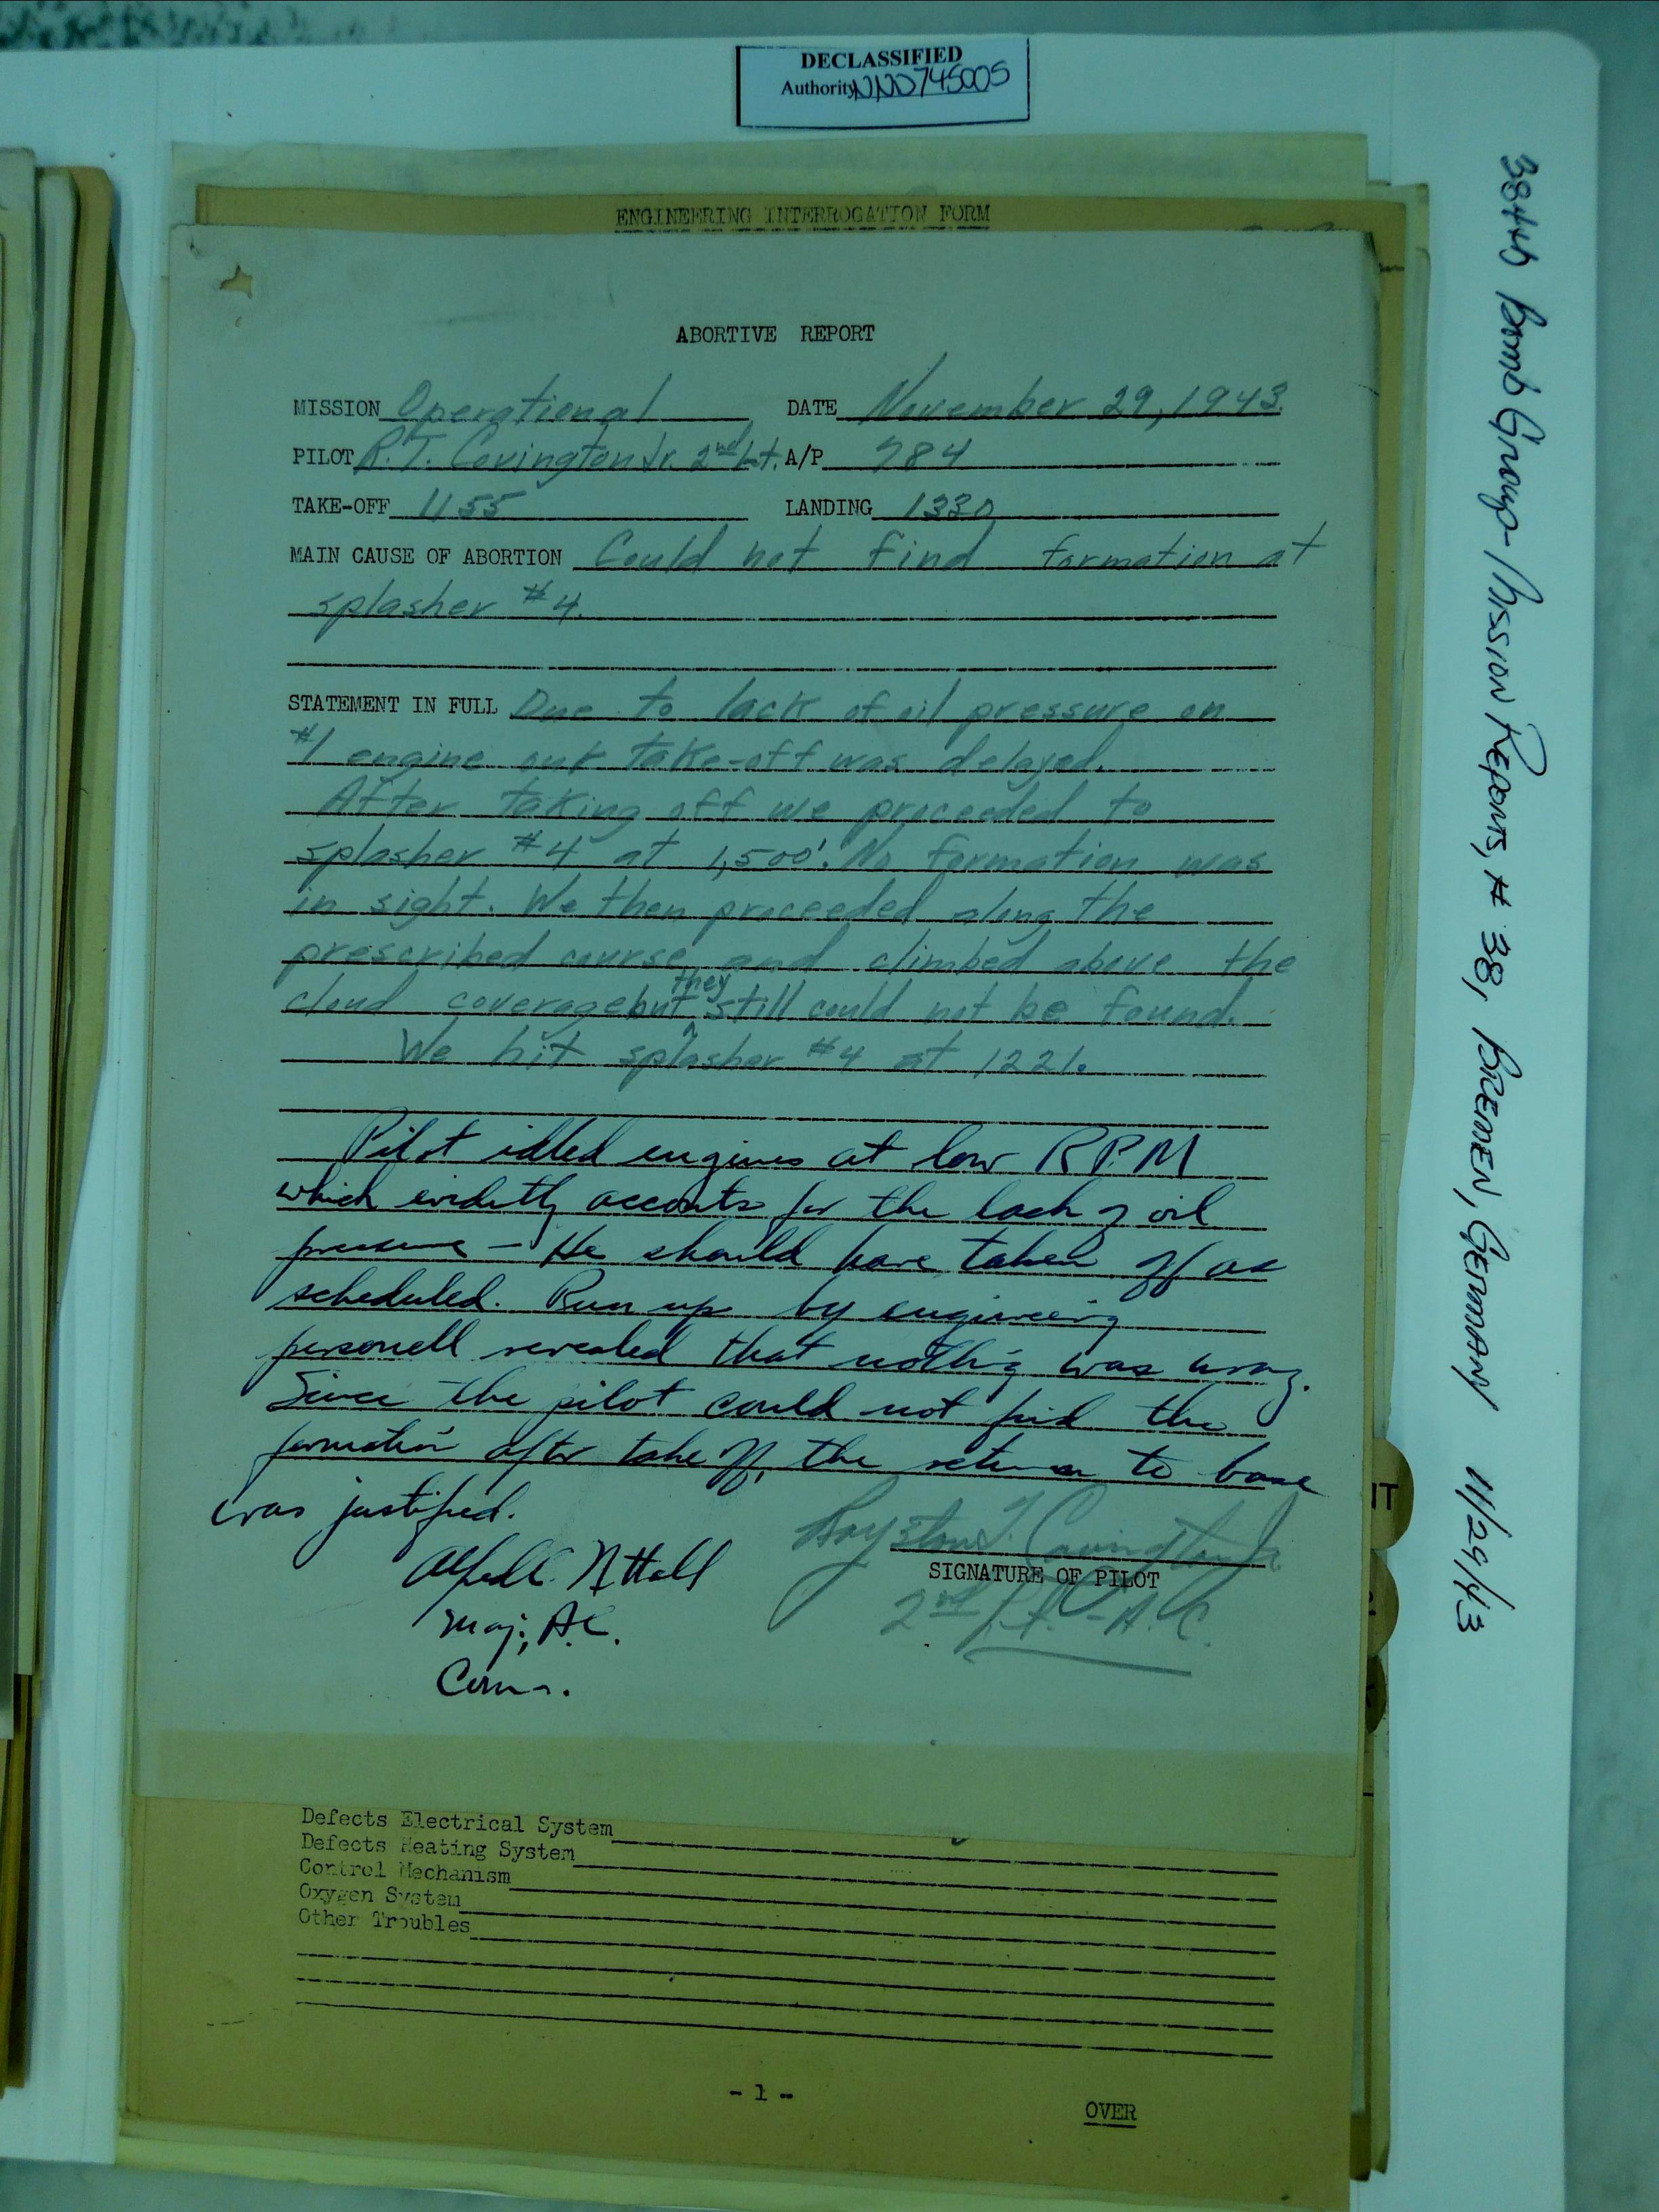 DECLASSIFIED
Authority NND745005
384th Bomb Group - Mission Reports, # 38, BREMEN, GERMANY 11/29/43
ENGINEERING INTERROGATION FORM
ABORTIVE REPORT
MISSION Operational DATE November 29, 1943.
PILOT R.T. Covington Jr. 2nd Lt. A/P 784
TAKE-OFF 1155 LANDING 1330
MAIN CAUSE OF ABORTION Could not find formation at
splasher #4.
STATEMENT IN FULL Due to lack of oil pressure on
#1 engine our take-off was delayed.
After taking off we proceeded to
splasher #4 at 1,500'. No formation was
in sight. We then proceeded along the
prescribed course and climbed above the
cloud coverage but they still could not be found.
We hit splasher #4 at 1221.
Pilot idled engines at low R.P.M
which evidetly accounts for the lack of oil
pressure - He should have taken off as
scheduled. Run up by engineering
personell revealed that nothing was wrong.
Since the pilot could not find the
formation after take off, the return to base
was justified.
Alfred C. Nuttall
Maj., A.C.
Com.
Royston T. Covington Jr
SIGNATURE OF PILOT
2nd Lt. - A.C.
IT
Defects Electrical System
Defects Heating System
Control Mechanism
Oxygen System
Other Troubles
- 1 -
OVER